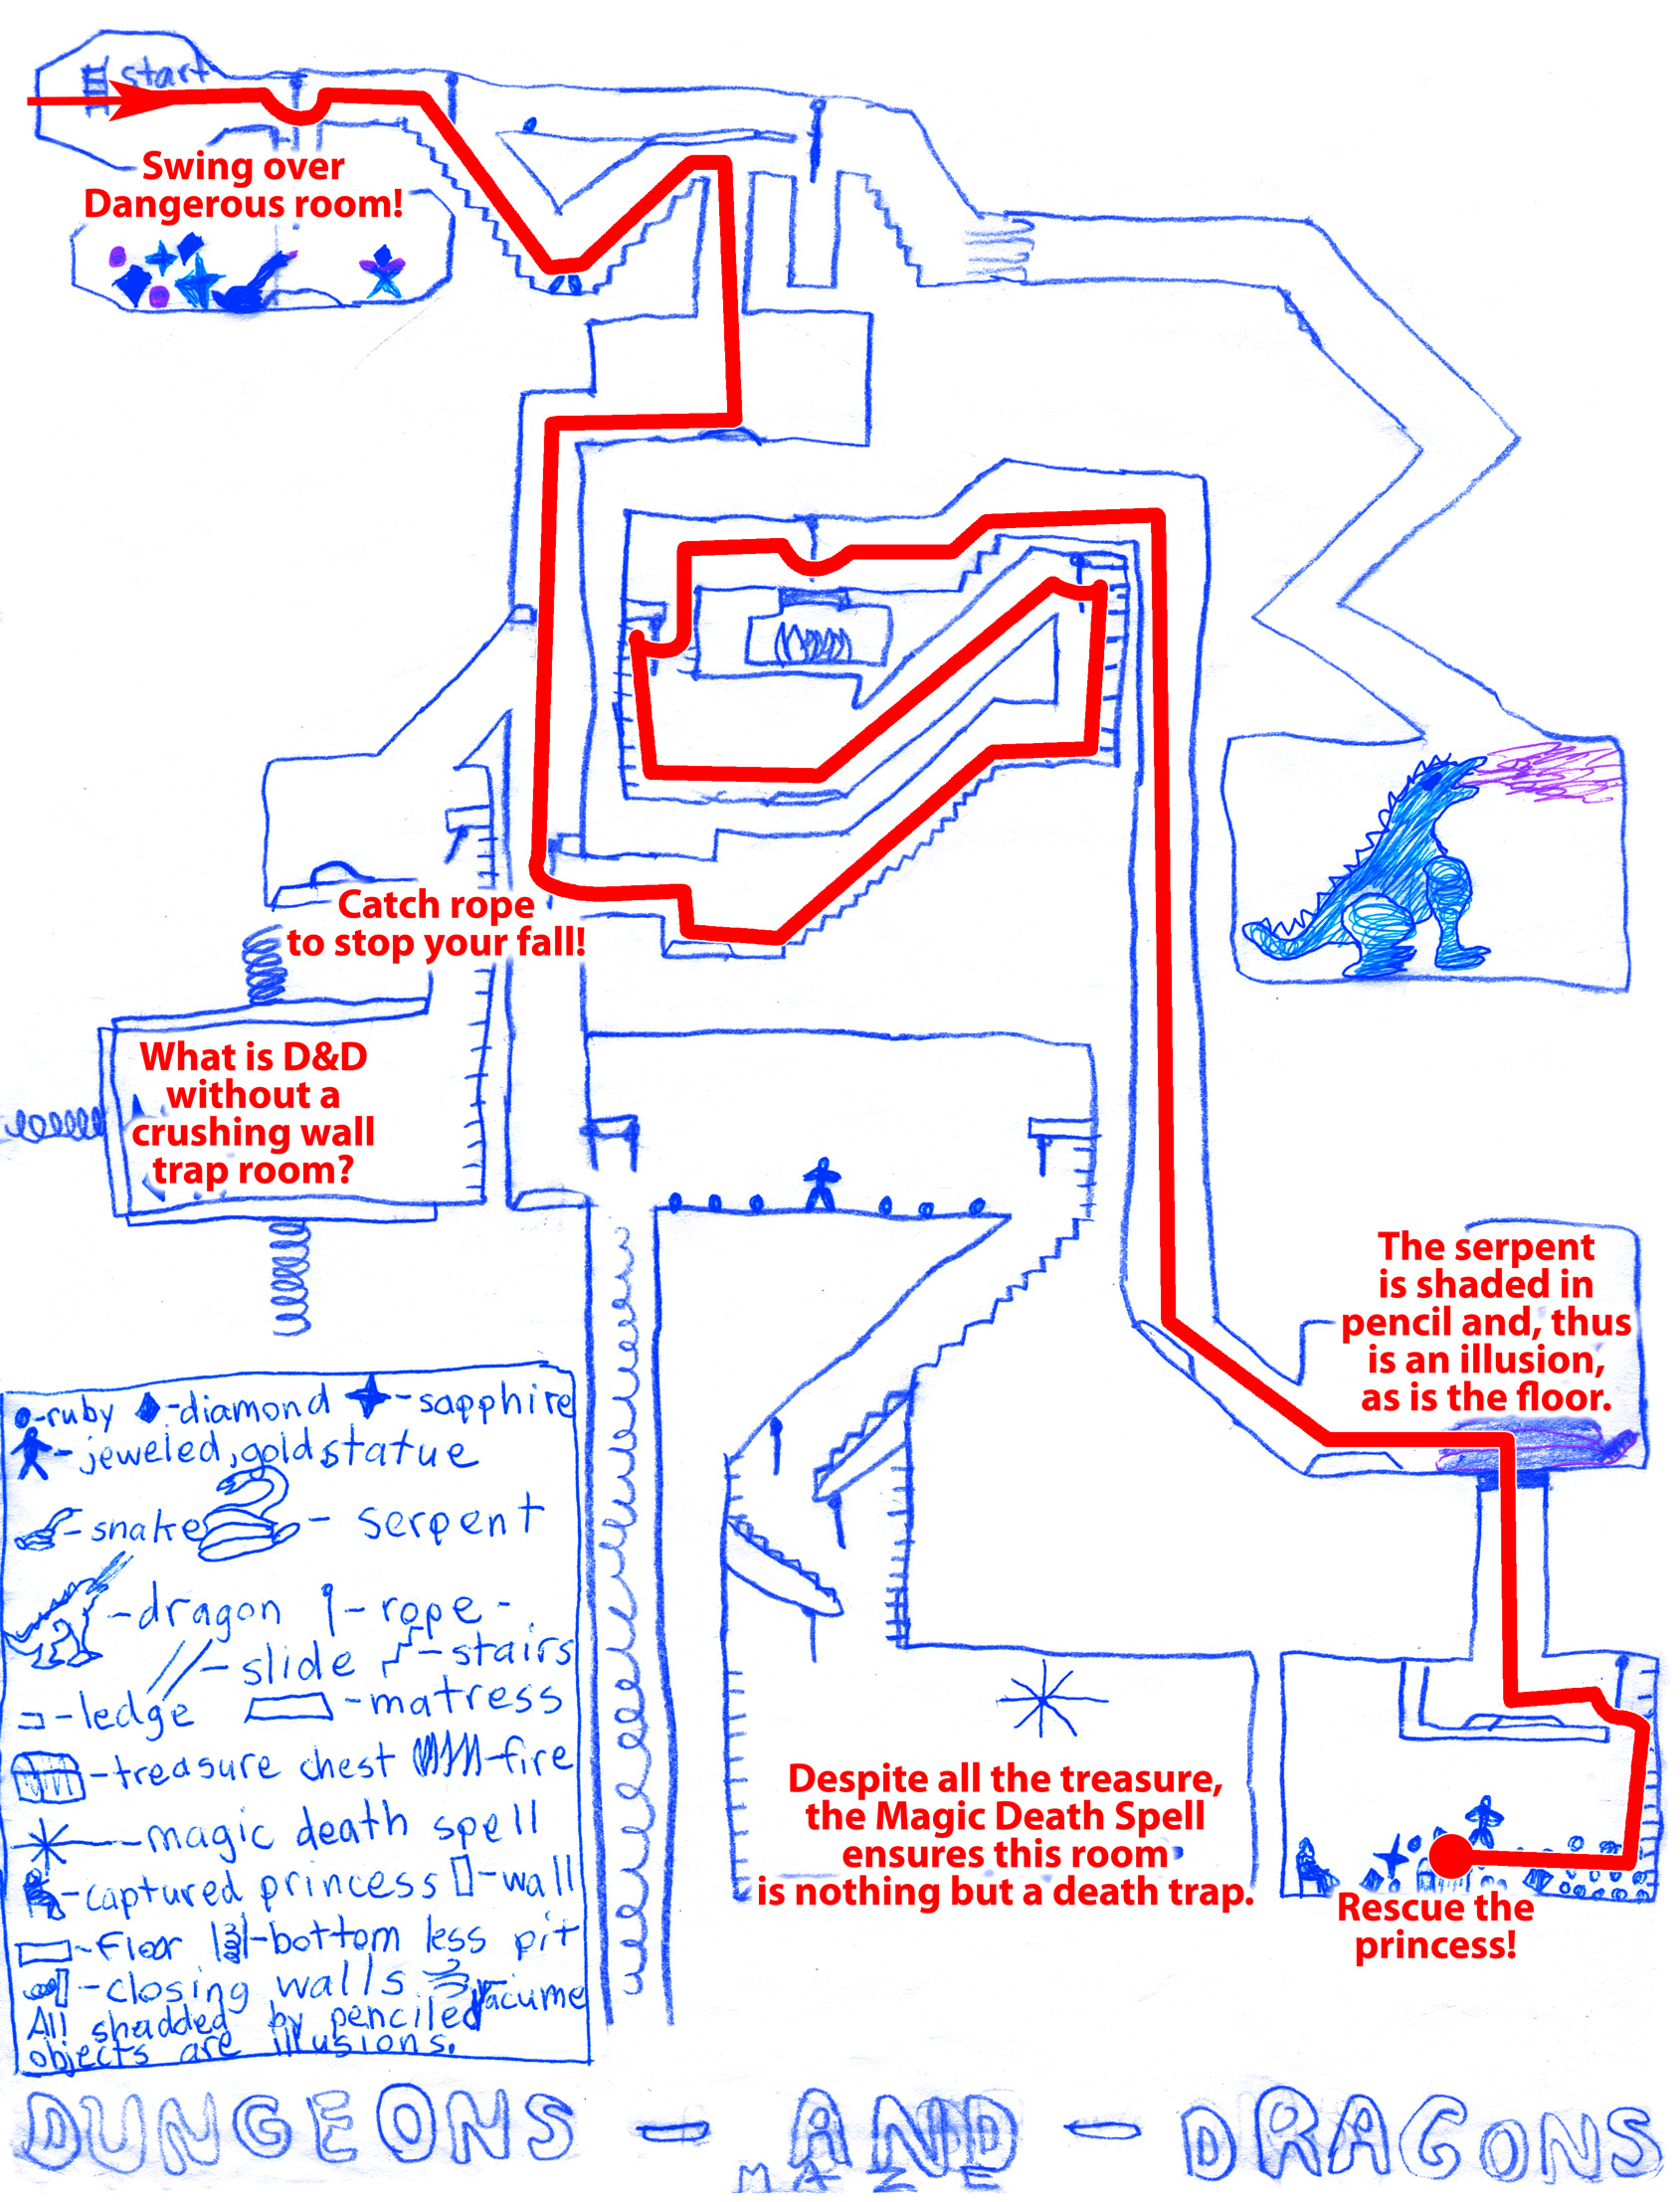 start
Swing over
Dangerous room!
Catch rope
to stop your fall!
What is D&D
without a
crushing wall
trap room?
The serpent
is shaded in
pencil and, thus
is an illusion,
as is the floor.
Despite all the treasure,
the Magic Death Spell
ensures this room
is nothing but a death trap.
Rescue the
princess!
-ruby -diamond -sapphire
-jeweled, gold statue
-snake - serpent
-dragon -rope-
-slide -stairs
-ledge -matress
-treasure chest -fire
-magic death spell
-captured princess -wall
-floor -bottom less pit
-closing walls -vacume
All shadded by penciled
objects are illusions.
DUNGEONS - AND - DRAGONS
MAZE